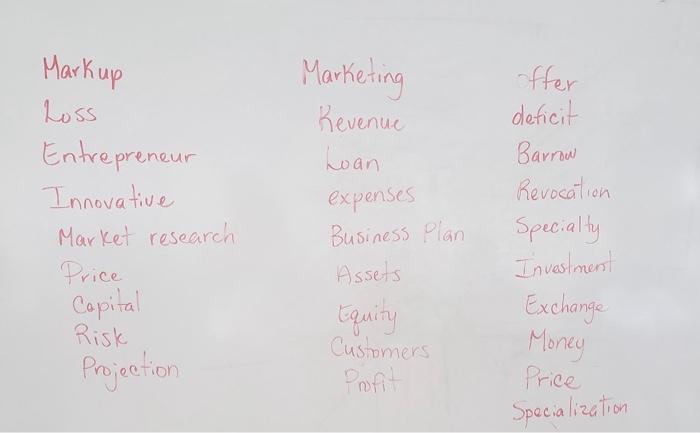 Markup
Loss
Entrepreneur
Innovative
Market research
Price
Capital
Risk
Projection
Marketing
Revenue
Loan
expenses
Business Plan
Assets
Equity
Customers
Profit
offer
deficit
Barrow
Revocation
Specialty
Investment
Exchange
Money
Price
Specialization